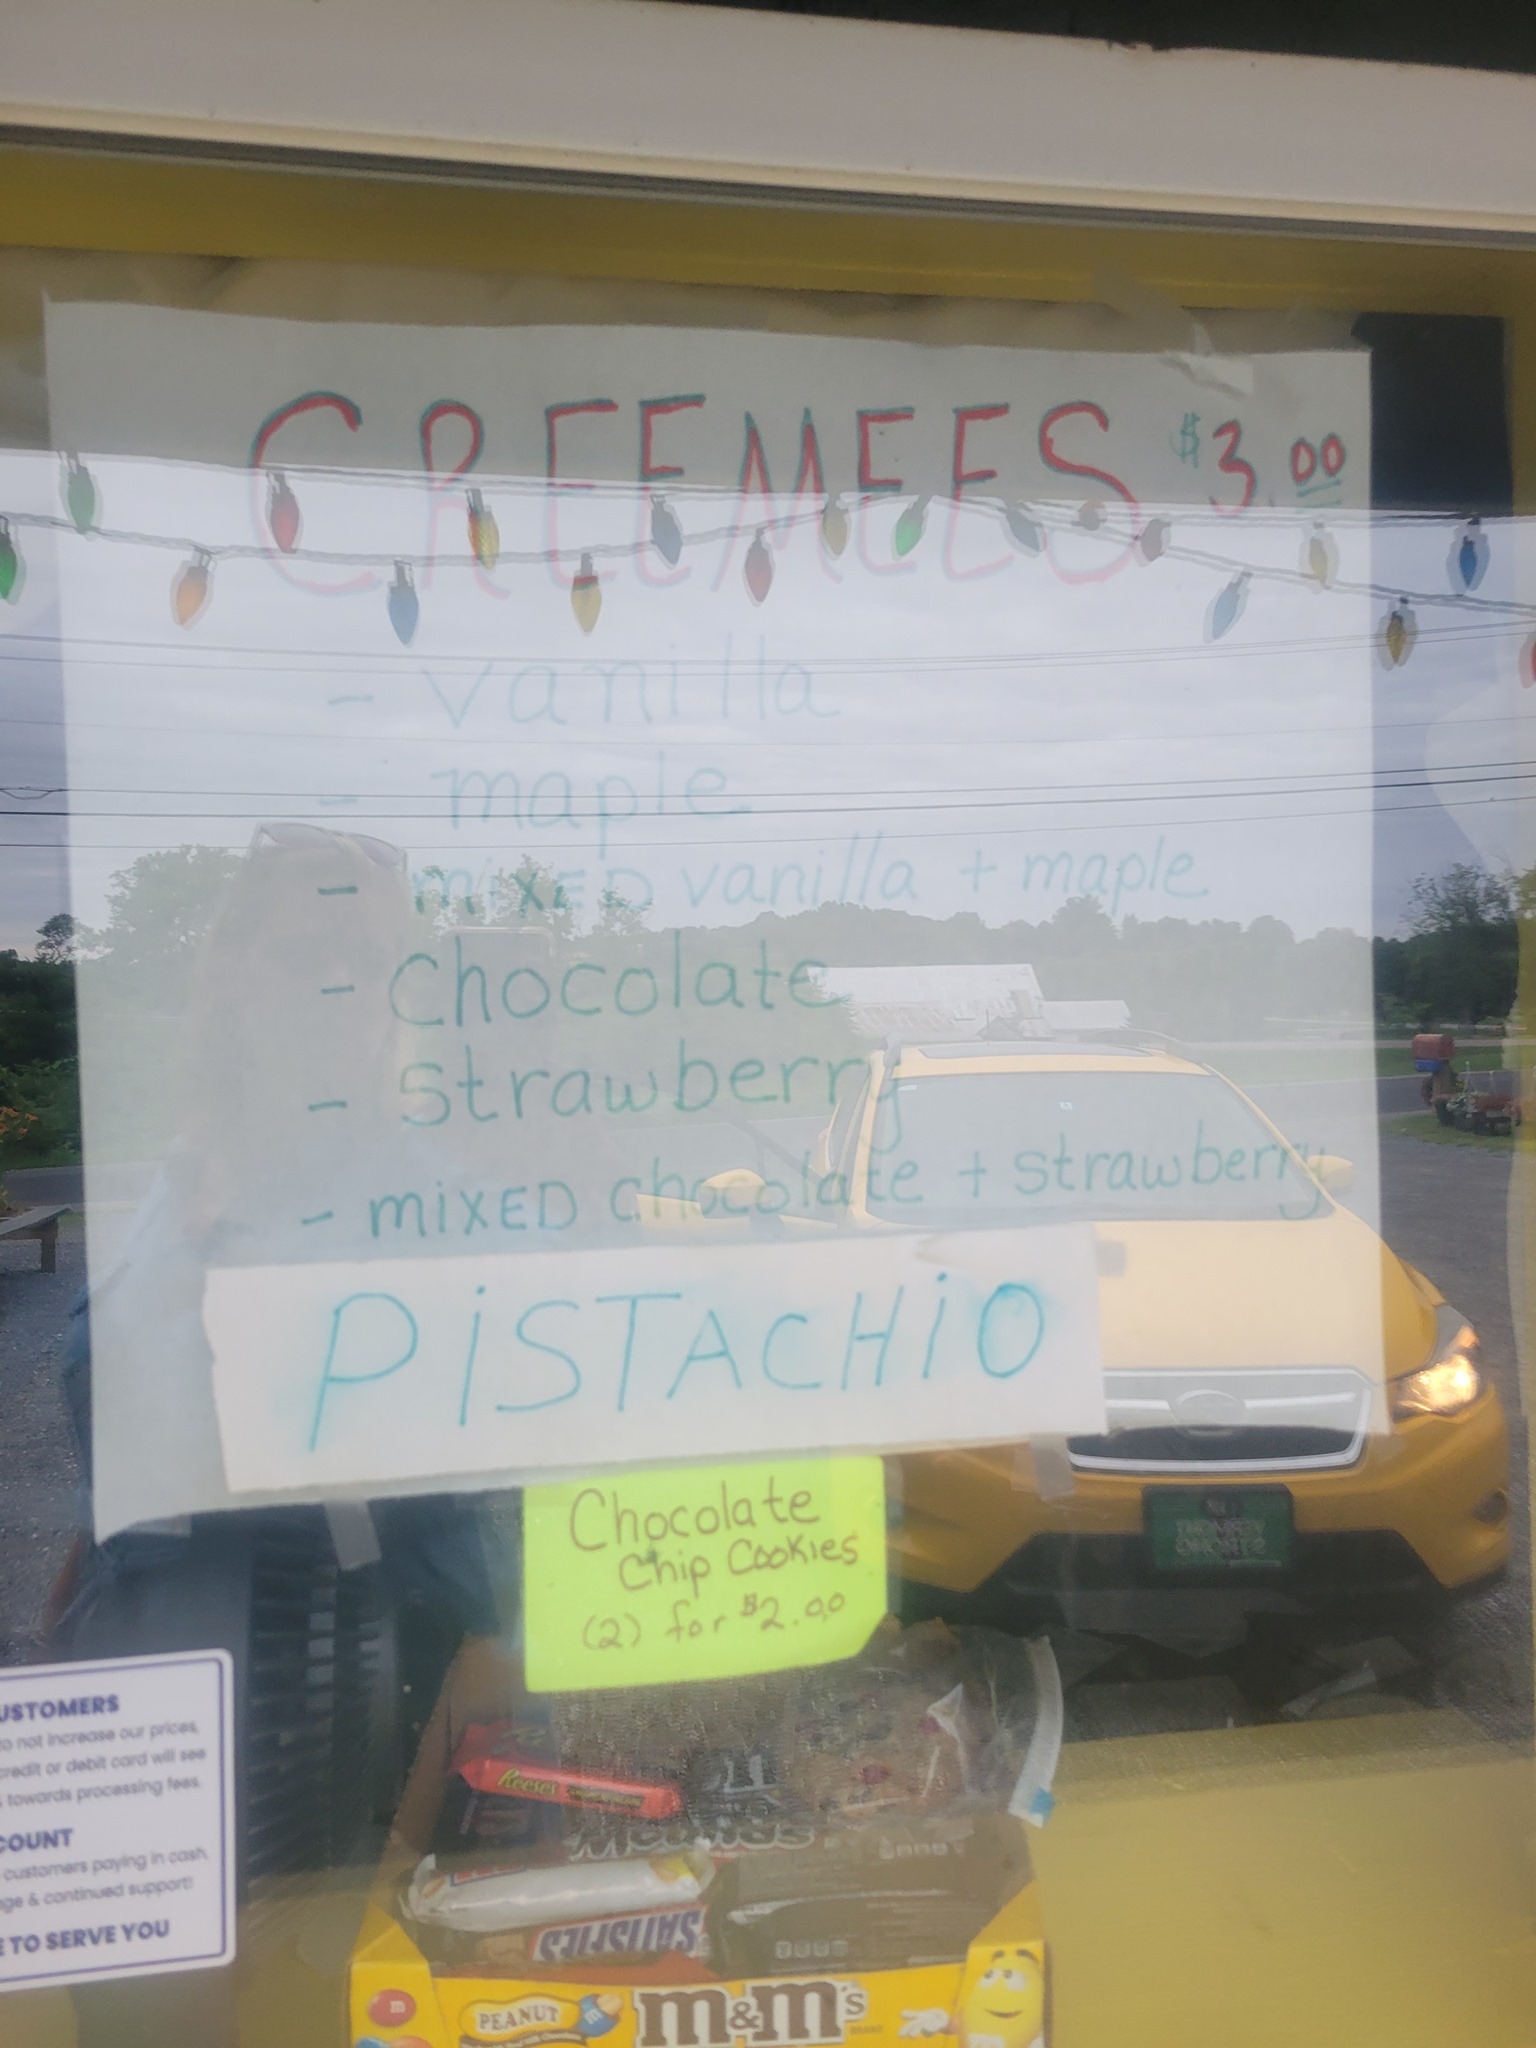 CREEMEES $3.00
- vanilla
- maple
- mixed vanilla + maple
- Chocolate
- strawberry
- mixed chocolate + strawberry
PiSTACHiO
Chocolate
Chip Cookies
(2) for $2.00
USTOMERS
to not increase our prices,
credit or debit card will see
towards processing fees.
COUNT
customers paying in cash.
ge & continued support!
E TO SERVE YOU
Reese's
SATISFIES
PEANUT
m&m's
m